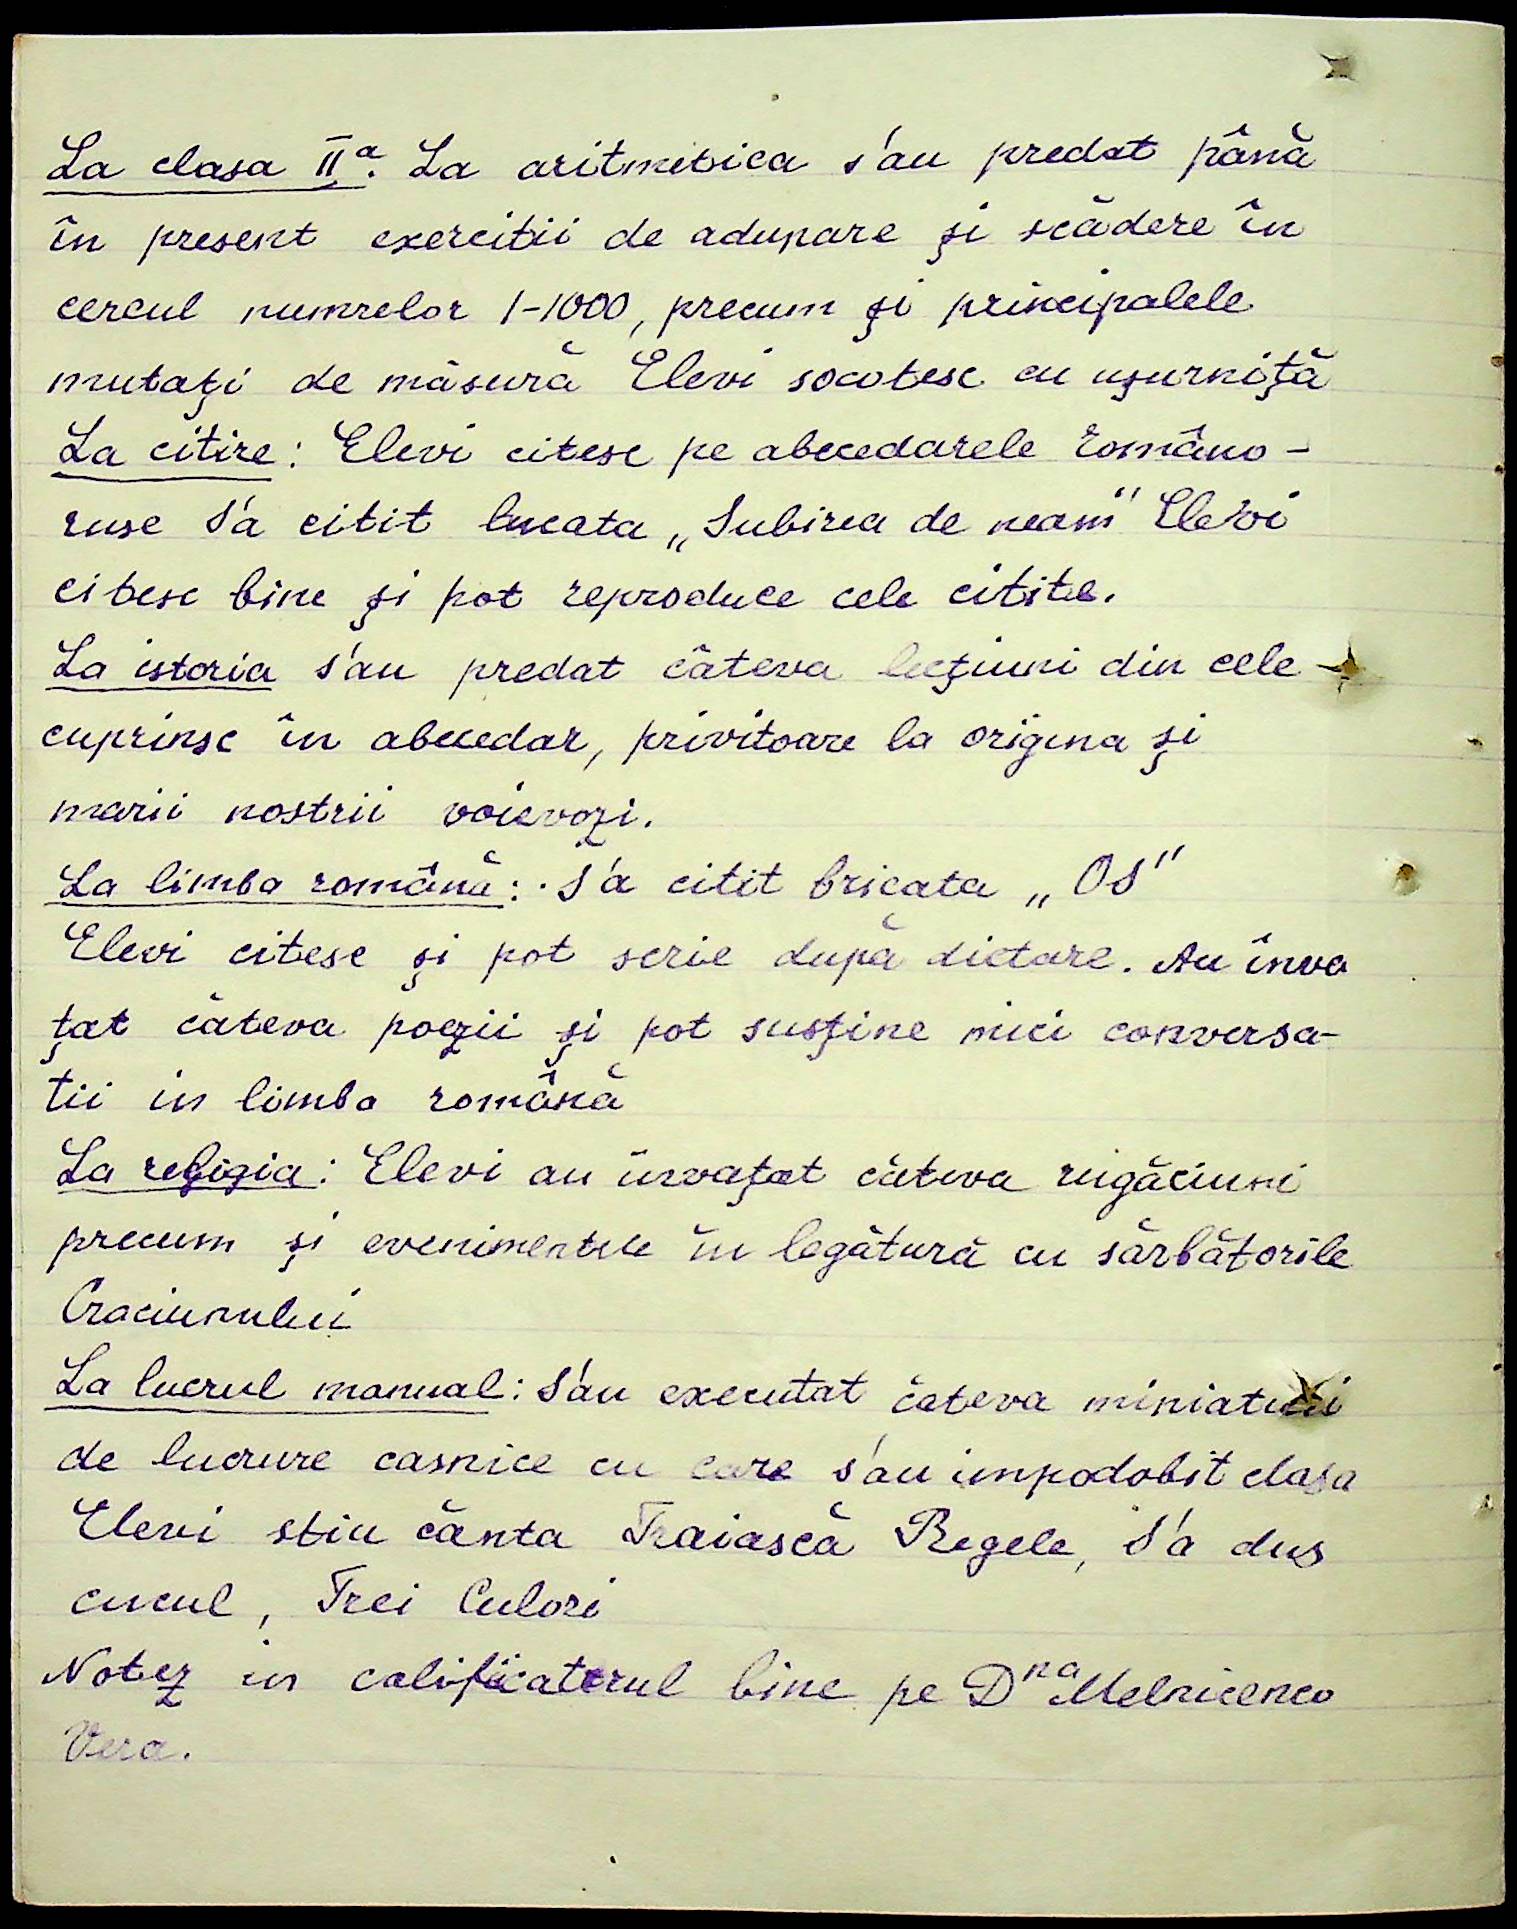 La clasa II<sup>a</sup>. La aritmetica s'au predat până
în present exercitii de adunare și scădere în
cercul numrelor 1-1000, precum și principalele
mutați de măsură Elevi socotesc cu ușurniță
La citire: Elevi citesc pe abecedarele româno-
ruse S'a citit bucata „Iubirea de neam" Elevi
citesc bine și pot reproduce cele citite.
La istoria s'au predat câteva lecțiuni din cele
cuprinse în abecedar, privitoare la origina și
marii nostrii voievozi.
La limba română: S'a citit bricata „Os"
Elevi citesc și pot scrie după dictare. Au înva
țat câteva poezii și pot susține mici conversa-
tii in limba română
La religia: Elevi au învațat câteva rugăciuni
precum și evenimentele în legătură cu sărbățorile
Craciunului
La lucrul manual: S'au executat cateva miniaturi
de lucrure casnice cu care s'au impodobit clasa
Elevi stiu cânta Traiască Regele, S'a dus
cucul, Trei Culori
Notez in calificaterul bine pe D<sup>na</sup> Melnicenco
Vera.